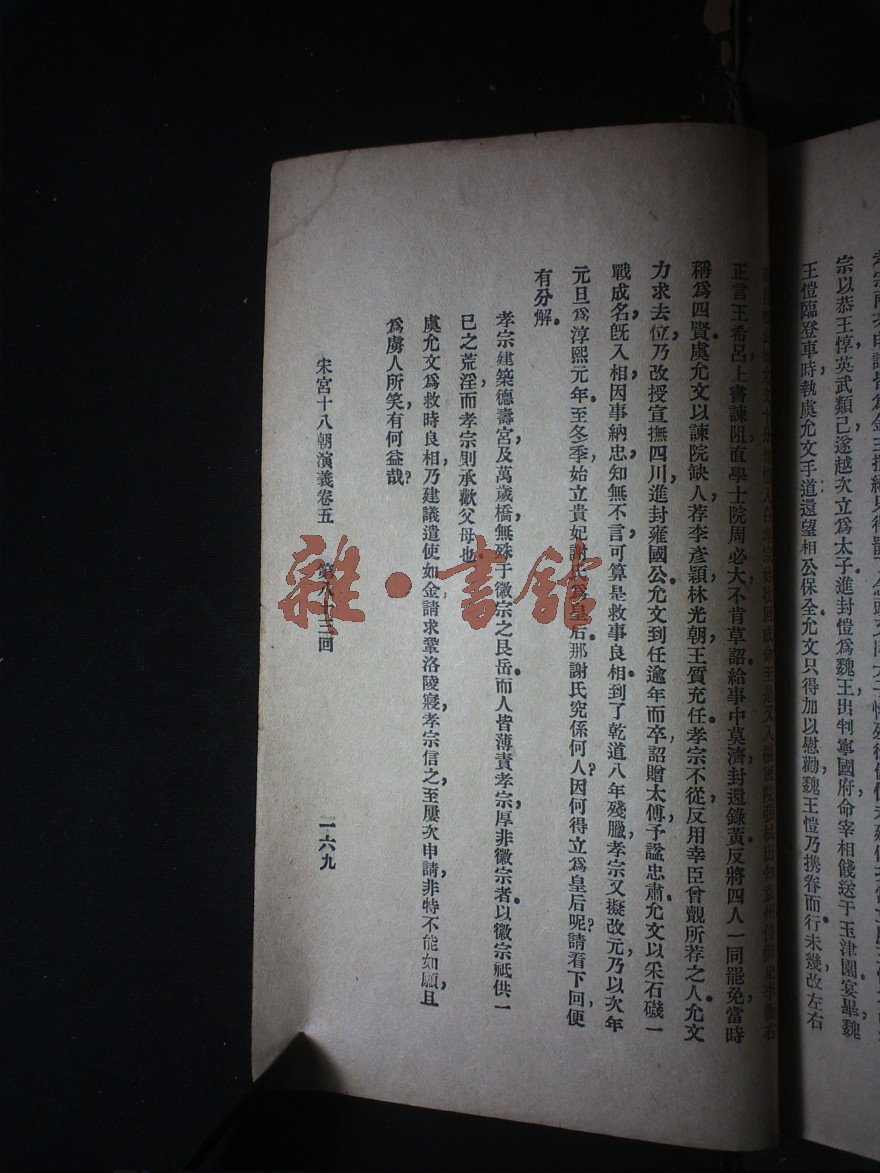 宗以恭王惇英武類己，遂越次立爲太子，進封愷爲魏王，出判寧國府，命宰相餞送于玉津園，宴畢，魏
王愷臨登車時，執虞允文手道：還望相公保全。允文只得加以慰勸，魏王愷乃携眷而行。未幾，改左右
正言王希呂上書諫阻，直學士院周必大不肯草詔，給事中莫濟封還錄黃，反將四人一同罷免，當時
稱爲四賢。虞允文以諫院缺人，荐李彥穎林光朝王質充任，孝宗不從，反用幸臣曾覿所荐之人。允文
力求去位，乃改授宣撫四川，進封雍國公。允文到任，逾年而卒，詔贈太傅，予諡忠肅。允文以采石磯一
戰成名，旣入相，因事納忠，知無不言，可算是救事良相。到了乾道八年殘臘，孝宗又擬改元，乃以次年
元旦爲淳熙元年。至冬季，始立貴妃謝氏爲皇后。那謝氏究係何人？因何得立爲皇后呢？請看下回便
有分解。
孝宗建築德壽宮及萬歲橋，無殊于徽宗之艮岳，而人皆薄責孝宗，厚非徽宗者，以徽宗祇供一
已之荒淫，而孝宗則承歡父母也。
虞允文爲救時良相，乃建議遣使如金，請求鞏洛陵寢，孝宗信之，至屢次申請，非特不能如願，且
爲虜人所笑，有何益哉？
宋宮十八朝演義卷五　第八十三回　一六九
雜·書館